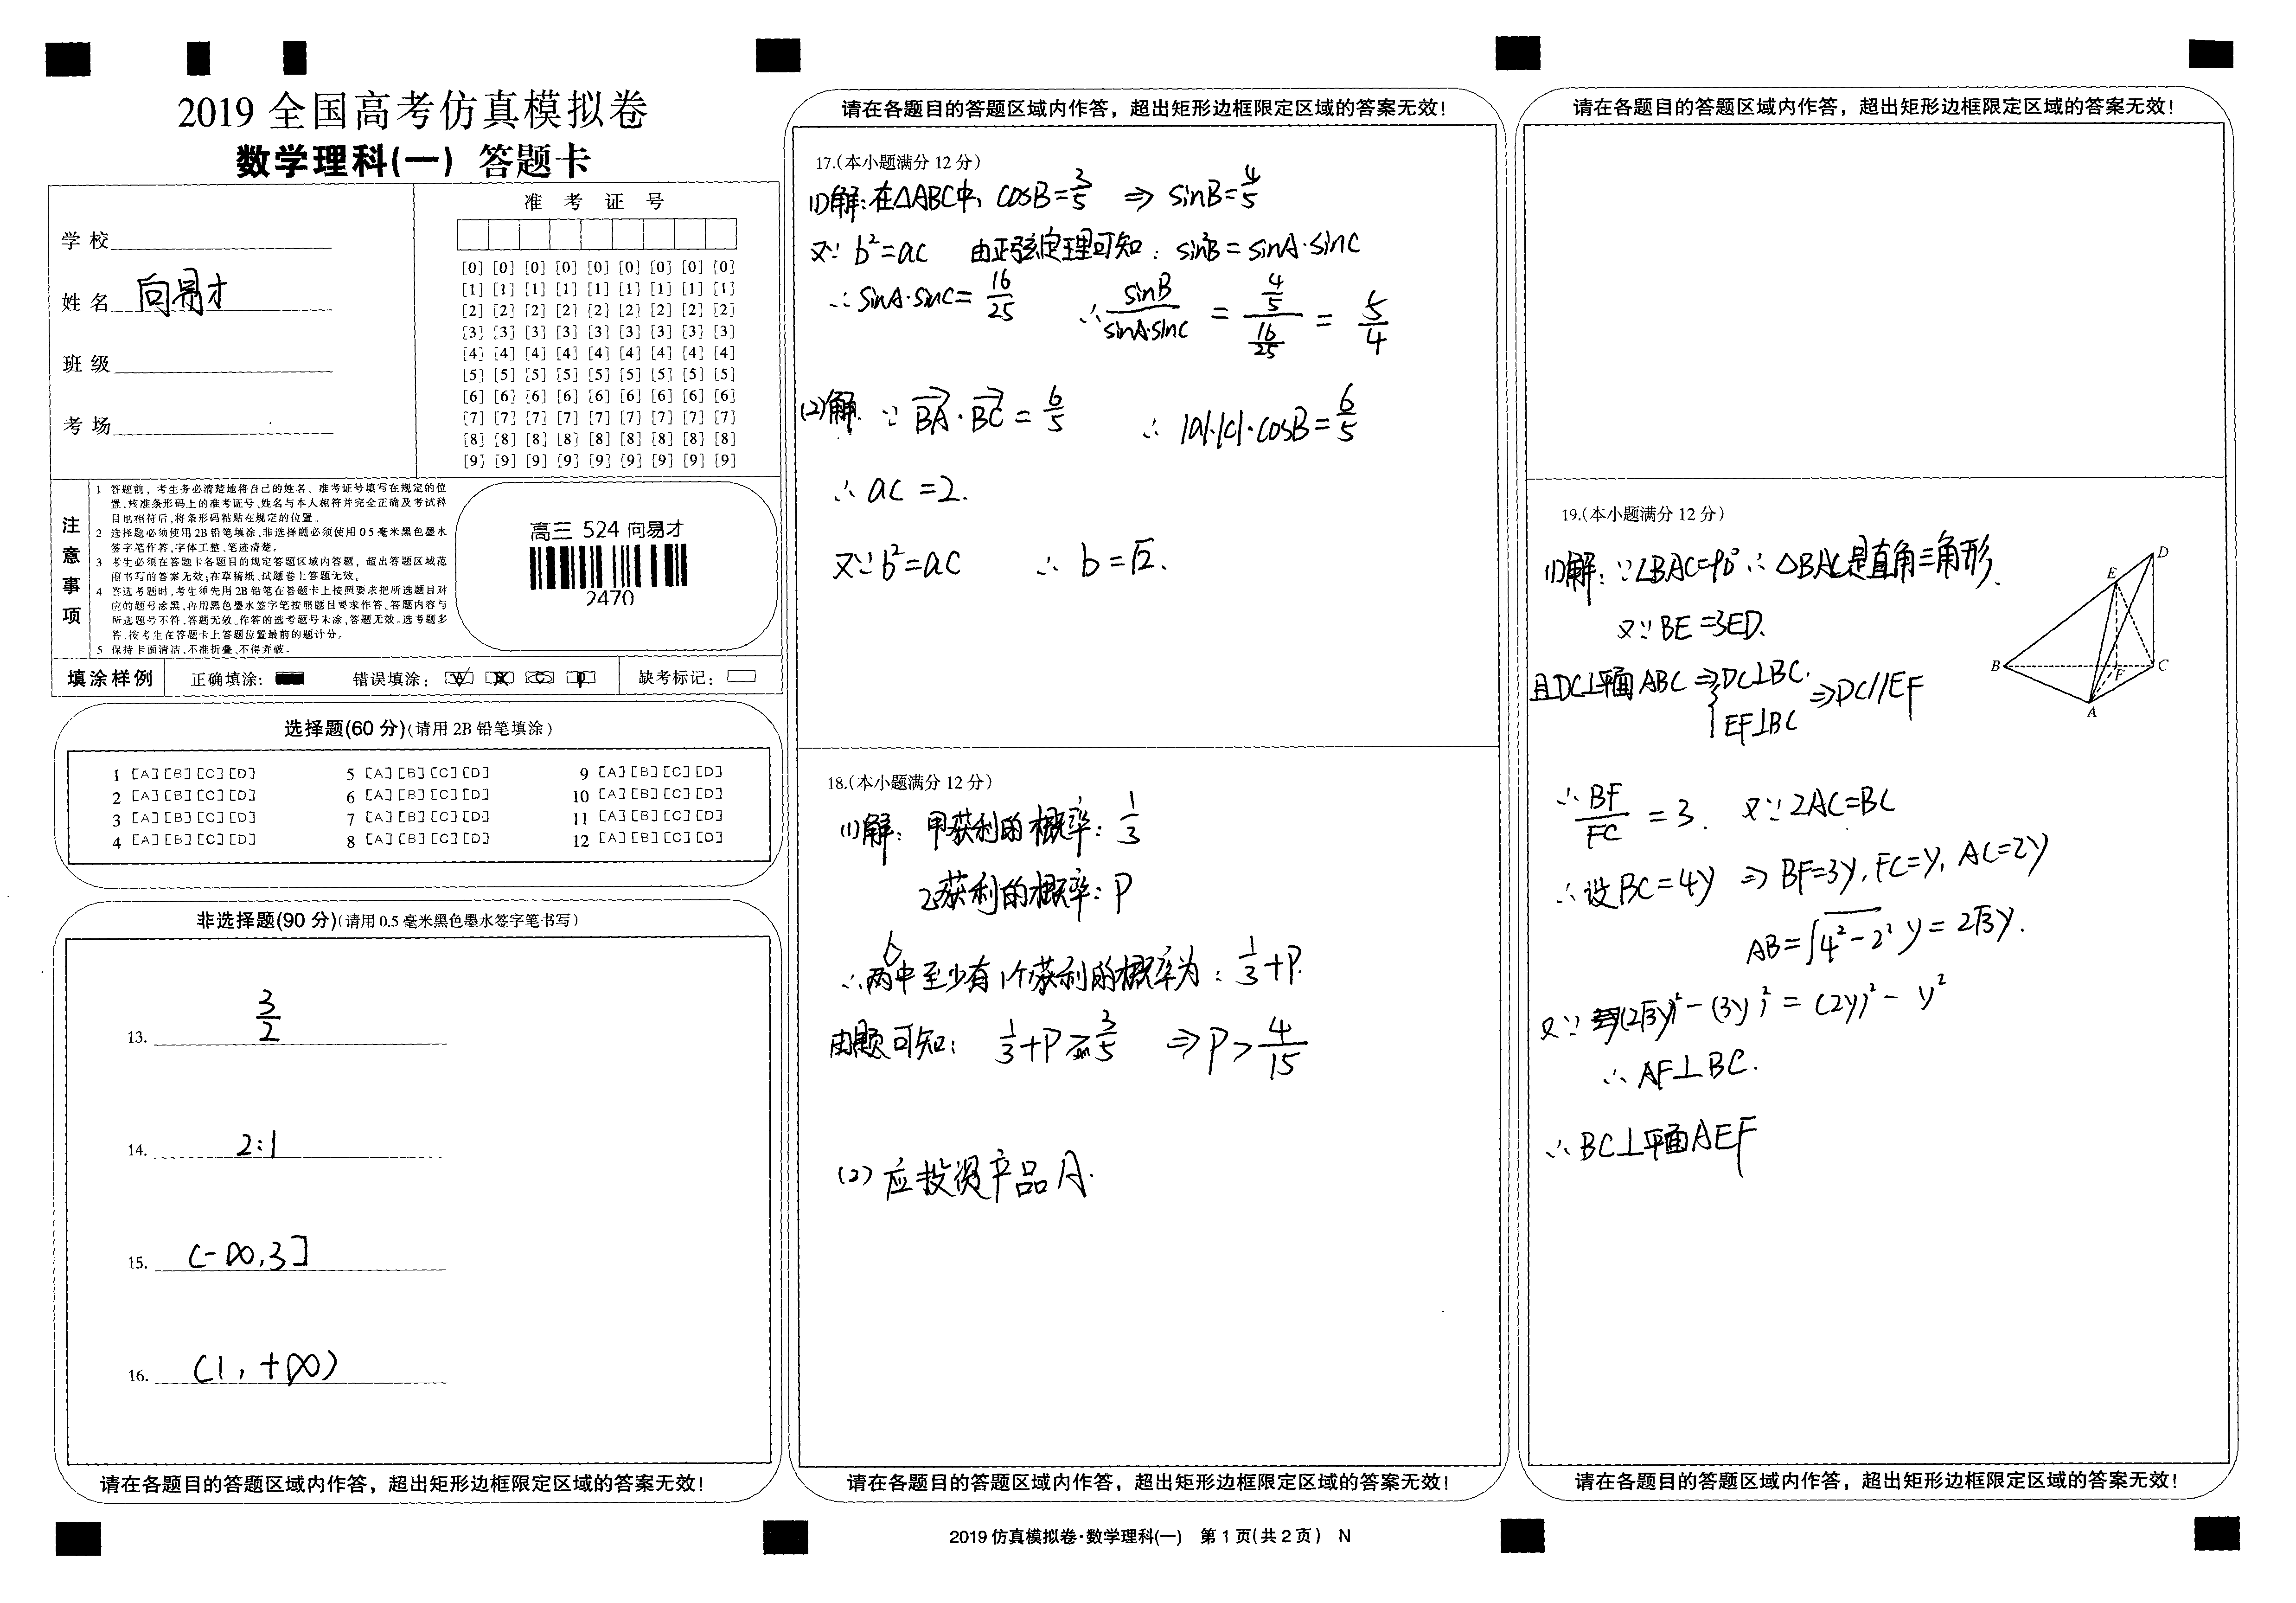 2019 全国高考仿真模拟卷
数学理科(一) 答题卡
学校
姓名 向易才
班级
考场
准考证号
[0] [0] [0] [0] [0] [0] [0] [0] [0]
[1] [1] [1] [1] [1] [1] [1] [1] [1]
[2] [2] [2] [2] [2] [2] [2] [2] [2]
[3] [3] [3] [3] [3] [3] [3] [3] [3]
[4] [4] [4] [4] [4] [4] [4] [4] [4]
[5] [5] [5] [5] [5] [5] [5] [5] [5]
[6] [6] [6] [6] [6] [6] [6] [6] [6]
[7] [7] [7] [7] [7] [7] [7] [7] [7]
[8] [8] [8] [8] [8] [8] [8] [8] [8]
[9] [9] [9] [9] [9] [9] [9] [9] [9]
注意事项
1 答题前，考生务必清楚地将自己的姓名、准考证号填写在规定的位
置，核准条形码上的准考证号、姓名与本人相符并完全正确及考试科
目也相符后，将条形码粘贴在规定的位置。
2 选择题必须使用2B铅笔填涂，非选择题必须使用05毫米黑色墨水
签字笔作答，字体工整、笔迹清楚。
3 考生必须在答题卡各题目的规定答题区域内答题，超出答题区域范
围书写的答案无效；在草稿纸、试题卷上答题无效。
4 答选考题时，考生须先用2B铅笔在答题卡上按照要求把所选题目对
应的题号涂黑，再用黑色墨水签字笔按照题目要求作答。答题内容与
所选题号不符，答题无效。作答的选考题号未涂，答题无效。选考题多
答，按考生在答题卡上答题位置最前的题计分。
5 保持卡面清洁，不准折叠、不得弄破。
高三 524 向易才
2470
填涂样例 正确填涂： 错误填涂： 缺考标记：
选择题(60分)(请用2B铅笔填涂)
1 [A] [B] [C] [D] 5 [A] [B] [C] [D] 9 [A] [B] [C] [D]
2 [A] [B] [C] [D] 6 [A] [B] [C] [D] 10 [A] [B] [C] [D]
3 [A] [B] [C] [D] 7 [A] [B] [C] [D] 11 [A] [B] [C] [D]
4 [A] [B] [C] [D] 8 [A] [B] [C] [D] 12 [A] [B] [C] [D]
非选择题(90分)(请用0.5毫米黑色墨水签字笔书写)
13. 3/2
14. 2:1
15. (-∞,3]
16. (1,+∞)
请在各题目的答题区域内作答，超出矩形边框限定区域的答案无效！
请在各题目的答题区域内作答，超出矩形边框限定区域的答案无效！
17.(本小题满分12分)
(1)解：在△ABC中，cosB=3/5 ⇒ sinB=4/5
又∵ b²=ac 由正弦定理可知：sin²B=sinA·sinC
∴sinA·sinC=16/25 ∴ sinB/(sinA·sinC) = (4/5)/(16/25) = 5/4
(2)解. ∵ BA·BC = 6/5 ∴ |a|·|c|·cosB=6/5
∴ ac=2.
又∵b²=ac ∴ b=√2.
18.(本小题满分12分)
(1)解：甲获利的概率：1/3
乙获利的概率：P
∴两中至少有1个获利的概率为：1/3+P.
由题可知：1/3+P≥3/5 ⇒P>4/15
(2) 应投资产品A.
请在各题目的答题区域内作答，超出矩形边框限定区域的答案无效！
2019仿真模拟卷·数学理科(一) 第1页(共2页) N
请在各题目的答题区域内作答，超出矩形边框限定区域的答案无效！
19.(本小题满分12分)
(1)解：∵∠BAC=90° ∴△BAC是直角三角形.
又∵BE=3ED.
且DC⊥平面ABC ⇒ { DC⊥BC. EF⊥BC ⇒DC//EF
D
E
B
C
F
A
∴ BF/FC = 3. 又∵2AC=BC
∴设BC=4y ⇒ BF=3y, FC=y, AC=2y
AB=√(4²-2²) y=2√3y.
又∵ (2√3y)²-(3y)²=(2y)²-y²
∴ AF⊥BC.
∴BC⊥平面AEF
请在各题目的答题区域内作答，超出矩形边框限定区域的答案无效！